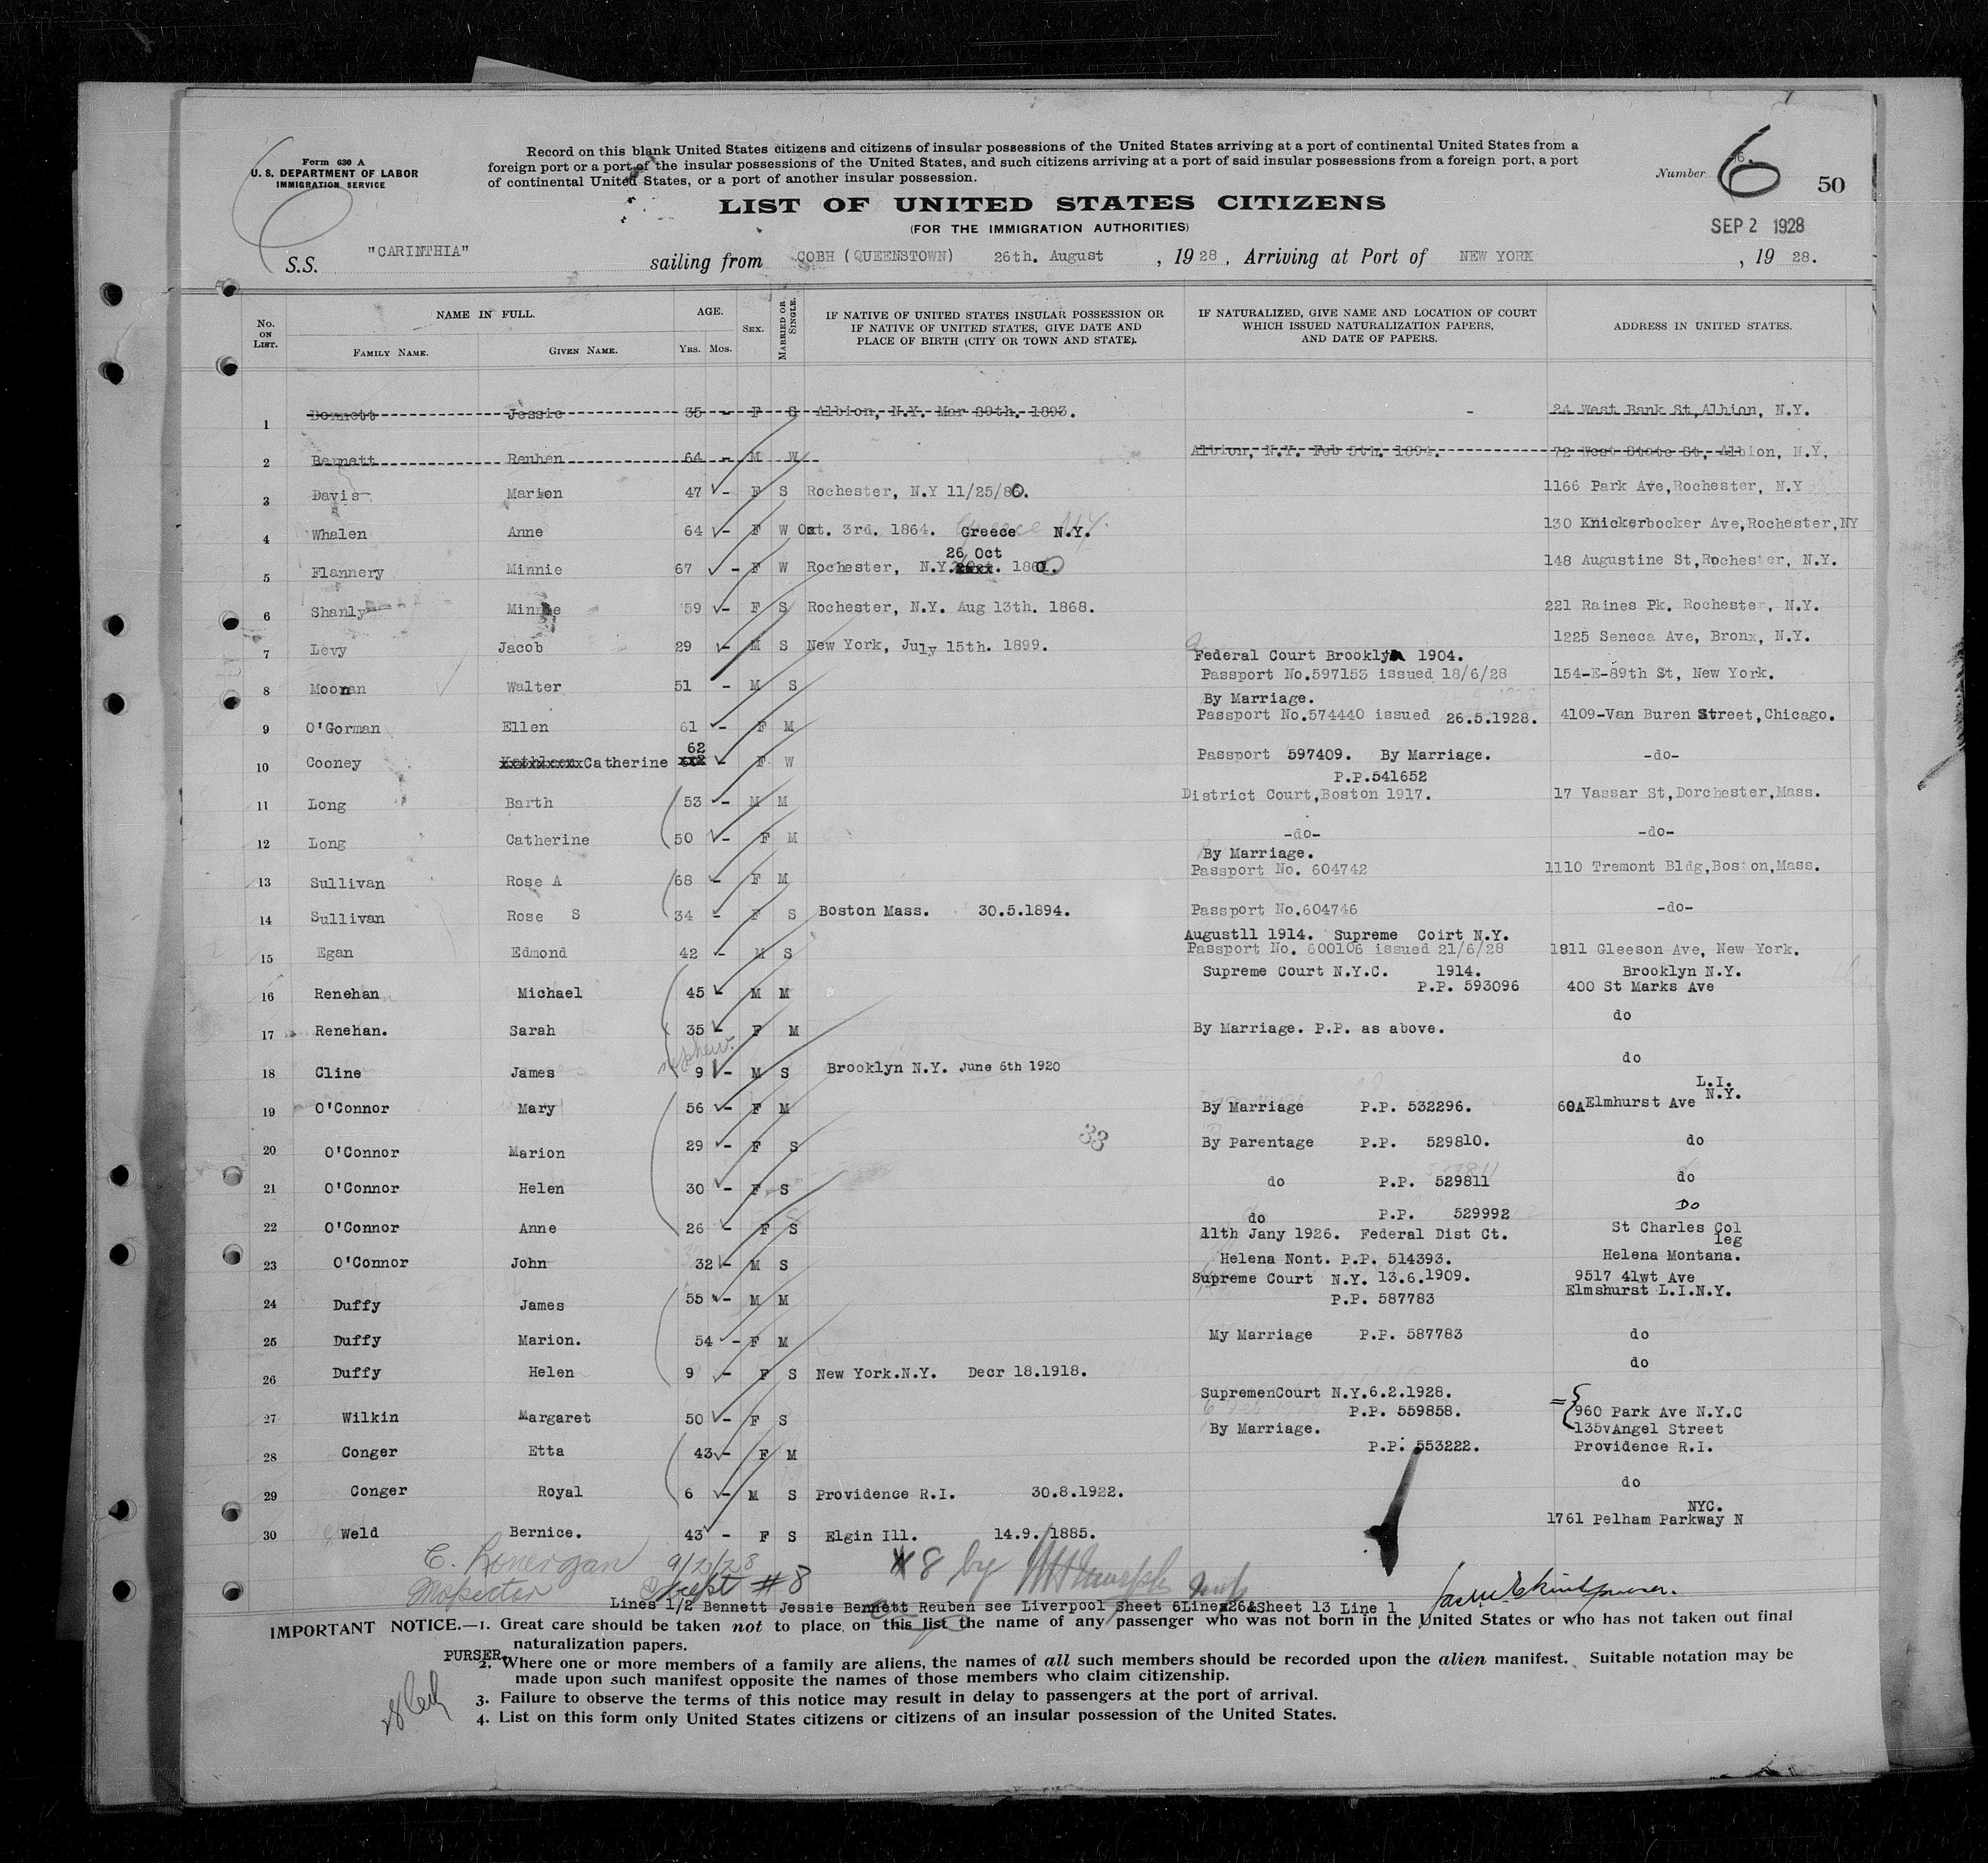 Form 630 A
U. S. DEPARTMENT OF LABOR
IMMIGRATION SERVICE
Record on this blank United States citizens and citizens of insular possessions of the United States arriving at a port of continental United States from a
foreign port or a port of the insular possessions of the United States, and such citizens arriving at a port of said insular possessions from a foreign port, a port
of continental United States, or a port of another insular possession.
Number 6 50
LIST OF UNITED STATES CITIZENS
(FOR THE IMMIGRATION AUTHORITIES)
SEP 2 1928
S.S. "CARINTHIA" sailing from COBH (QUEENSTOWN) 26th. August , 1928 , Arriving at Port of NEW YORK , 19 28.
No. ON LIST. NAME IN FULL. FAMILY NAME. GIVEN NAME. AGE. YRS. MOS. SEX. MARRIED OR SINGLE. IF NATIVE OF UNITED STATES INSULAR POSSESSION OR IF NATIVE OF UNITED STATES, GIVE DATE AND PLACE OF BIRTH (CITY OR TOWN AND STATE). IF NATURALIZED, GIVE NAME AND LOCATION OF COURT WHICH ISSUED NATURALIZATION PAPERS, AND DATE OF PAPERS. ADDRESS IN UNITED STATES.
1 Bennett Jessie 35 - F S Albion, N.Y. Mar 29th. 1893. - 24 West Bank St,Albion, N.Y.
2 Bennett Reuben 64 - M W Albion, N.Y. Feb 5th. 1894. 72 West State St, Albion, N.Y.
3 Davis Marion 47 - F S Rochester, N.Y 11/25/80. 1166 Park Ave,Rochester, N.Y
4 Whalen Anne 64 - F W Oct. 3rd. 1864. Greece N.Y. 130 Knickerbocker Ave,Rochester,NY
26 Oct
5 Flannery Minnie 67 - F W Rochester, N.Y. 1860. 148 Augustine St,Rochester, N.Y.
6 Shanly Minnie 59 - F S Rochester, N.Y. Aug 13th. 1868. 221 Raines Pk. Rochester, N.Y.
7 Levy Jacob 29 - M S New York, July 15th. 1899. 1225 Seneca Ave, Bronx, N.Y.
Federal Court Brooklyn 1904.
8 Moonan Walter 51 - M S Passport No.597153 issued 18/6/28 154-E-89th St, New York.
By Marriage.
9 O'Gorman Ellen 61 - F M Passport No.574440 issued 26.5.1928. 4109-Van Buren Street,Chicago.
62
10 Cooney Catherine - F W Passport 597409. By Marriage. -do-
P.P.541652
11 Long Barth 53 - M M District Court,Boston 1917. 17 Vassar St,Dorchester,Mass.
12 Long Catherine 50 - F M -do- -do-
By Marriage.
13 Sullivan Rose A 68 - F M Passport No. 604742 1110 Tremont Bldg,Boston,Mass.
14 Sullivan Rose S 34 - F S Boston Mass. 30.5.1894. Passport No.604746 -do-
August11 1914. Supreme Coirt N.Y.
15 Egan Edmond 42 - M S Passport No. 600106 issued 21/6/28 1811 Gleeson Ave, New York.
Supreme Court N.Y.C. 1914. Brooklyn N.Y.
16 Renehan Michael 45 - M M P.P. 593096 400 St Marks Ave
17 Renehan. Sarah 35 - F M By Marriage. P.P. as above. do
nephew.
18 Cline James 9 - M S Brooklyn N.Y. June 6th 1920 do
L.I.
N.Y.
19 O'Connor Mary 56 - F M By Marriage P.P. 532296. 60A Elmhurst Ave
20 O'Connor Marion 29 - F S By Parentage P.P. 529810. do
33
21 O'Connor Helen 30 - F S do P.P. 529811 do
22 O'Connor Anne 26 - F S do P.P. 529992 Do
11th Jany 1926. Federal Dist Ct. St Charles Col
leg
23 O'Connor John 32 - M S Helena Nont. P.P. 514393. Helena Montana.
Supreme Court N.Y. 13.6.1909. 9517 41wt Ave
24 Duffy James 55 - M M P.P. 587783 Elmshurst L.I.N.Y.
25 Duffy Marion. 54 - F M My Marriage P.P. 587783 do
26 Duffy Helen 9 - F S New York.N.Y. Decr 18.1918. do
SupremenCourt N.Y.6.2.1928.
27 Wilkin Margaret 50 - F S P.P. 559858. 960 Park Ave N.Y.C
By Marriage. 135vAngel Street
28 Conger Etta 43 - F M P.P. 553222. Providence R.I.
29 Conger Royal 6 - M S Providence R.I. 30.8.1922. do
NYC.
30 Weld Bernice. 43 - F S Elgin Ill. 14.9.1885. 1761 Pelham Parkway N
C. Lonergan 9/2/28 #8 by
Inspector Except #8
Lines 1/2 Bennett Jessie Bennett Reuben see Liverpool Sheet 6Line 26&Sheet 13 Line 1
IMPORTANT NOTICE.—1. Great care should be taken not to place on this list the name of any passenger who was not born in the United States or who has not taken out final
naturalization papers.
PURSER.
2. Where one or more members of a family are aliens, the names of all such members should be recorded upon the alien manifest. Suitable notation may be
made upon such manifest opposite the names of those members who claim citizenship.
3. Failure to observe the terms of this notice may result in delay to passengers at the port of arrival.
4. List on this form only United States citizens or citizens of an insular possession of the United States.